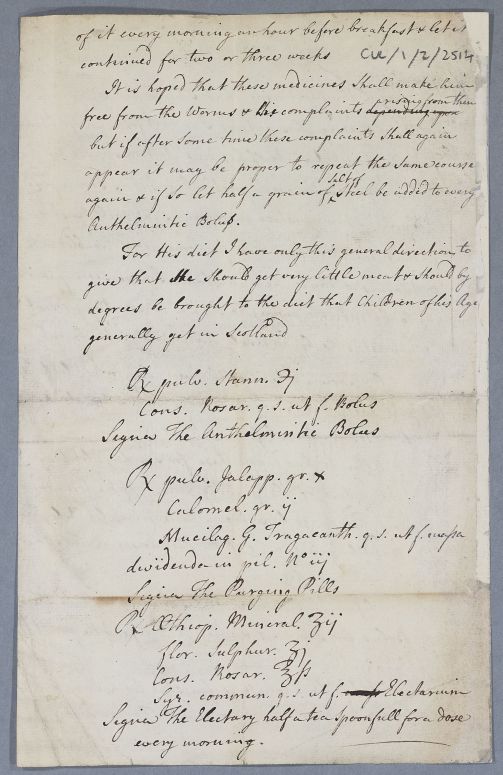 of it every morning an hour before breakfast & let it
continued for two or three weeks
CUL/1/2/2514
It is hoped that these medicines Shall make him
free from the Worms & His complaints depending upon arising from them
but if after Some time these complaints Shall again
appear it may be proper to repeat the Same course
again & if So let half a grain of Salt of Steel be added to every
Anthelmintic Boluss.
For His diet I have only this general direction to
give that He Should get very little meat & Should by
degrees be brought to the diet that Children of his Age
generally get in Scotland
℞ pulv. Stann. ʒj
Cons. Rosar. q.s. ut f. Bolus
Signa The Anthelmintic Bolus
℞ pulv. Jalapp. gr. x
Calomel. gr. ij
Mucilag. G. Tragacanth. q.s. ut f. massa
dividenda in pil. No iij
Signa The Purging Pills
℞ Æthiop. Mineral. ʒij
flor. Sulphur. ʒj
Cons. Rosar. ℥ß
Syr. commun. q.s. ut f. Electarium
Signa The Electary half a tea Spoonfull for a dose
every morning.